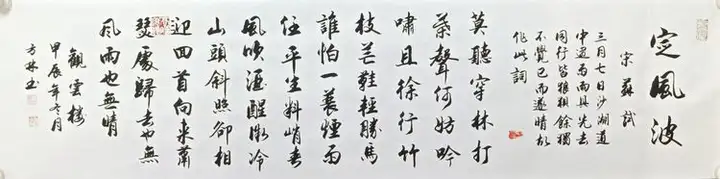 定風波
宋蘇軾
三月七日沙湖道
中遇雨雨具先去
同行皆狼狽餘獨
不覺已而遂晴故
作此詞
莫聽穿林打
葉聲何妨吟
嘯且徐行竹
杖芒鞋輕勝馬
誰怕一蓑煙雨
任平生料峭春
風吹酒醒微冷
山頭斜照卻相
迎回首向來蕭
瑟處歸去也無
風雨也無晴
觀雲樓
甲辰年冬月
方林書